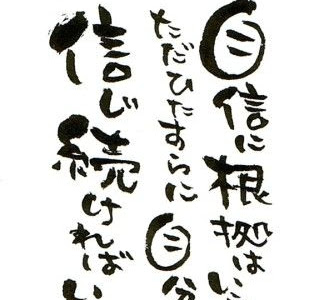 自信に根拠はい
ただひたすらに自分
信じ続ければい